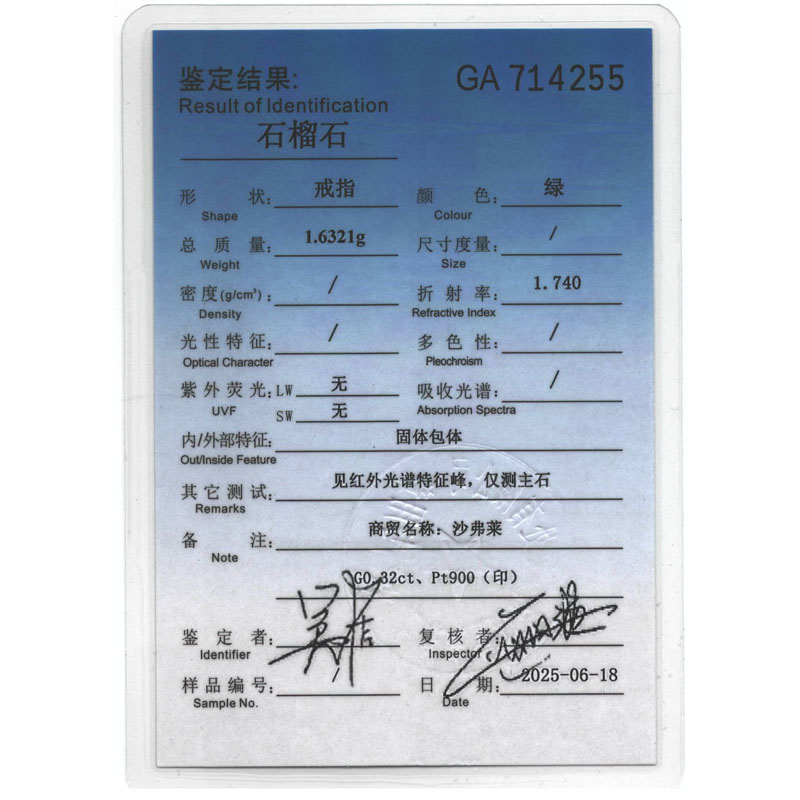 鉴定结果: GA 714255
Result of Identification
石榴石
形状: 戒指 颜色: 绿
Shape Colour
总质量: 1.6321g 尺寸度量: /
Weight Size
密度(g/cm³): / 折射率: 1.740
Density Refractive Index
光性特征: / 多色性: /
Optical Character Pleochroism
紫外荧光: LW 无 吸收光谱: /
UVF SW 无 Absorption Spectra
内/外部特征: 固体包体
Out/Inside Feature
其它测试: 见红外光谱特征峰,仅测主石
Remarks
备注: 商贸名称: 沙弗莱
Note
G0.32ct、Pt900(印)
鉴定者: 复核者:
Identifier Inspector
样品编号: / 日期: 2025-06-18
Sample No. Date